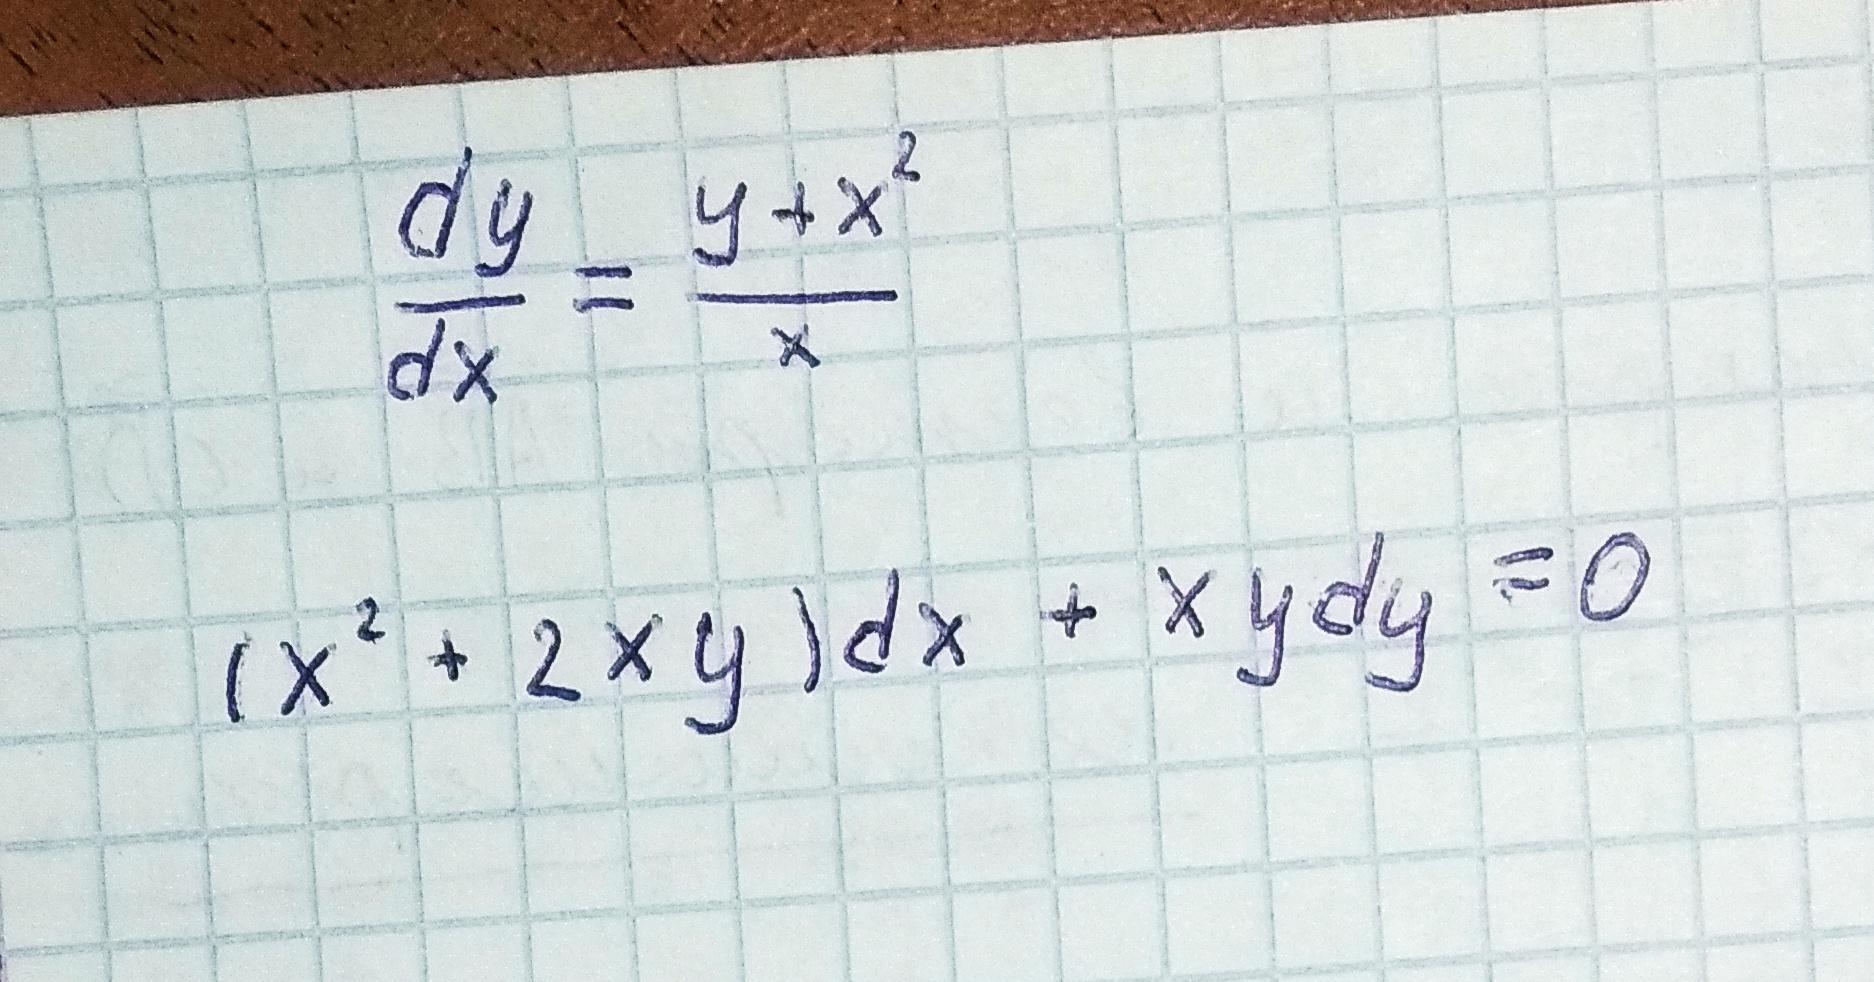 dy/dx = (y+x²)/x
(x² + 2xy)dx + xydy = 0